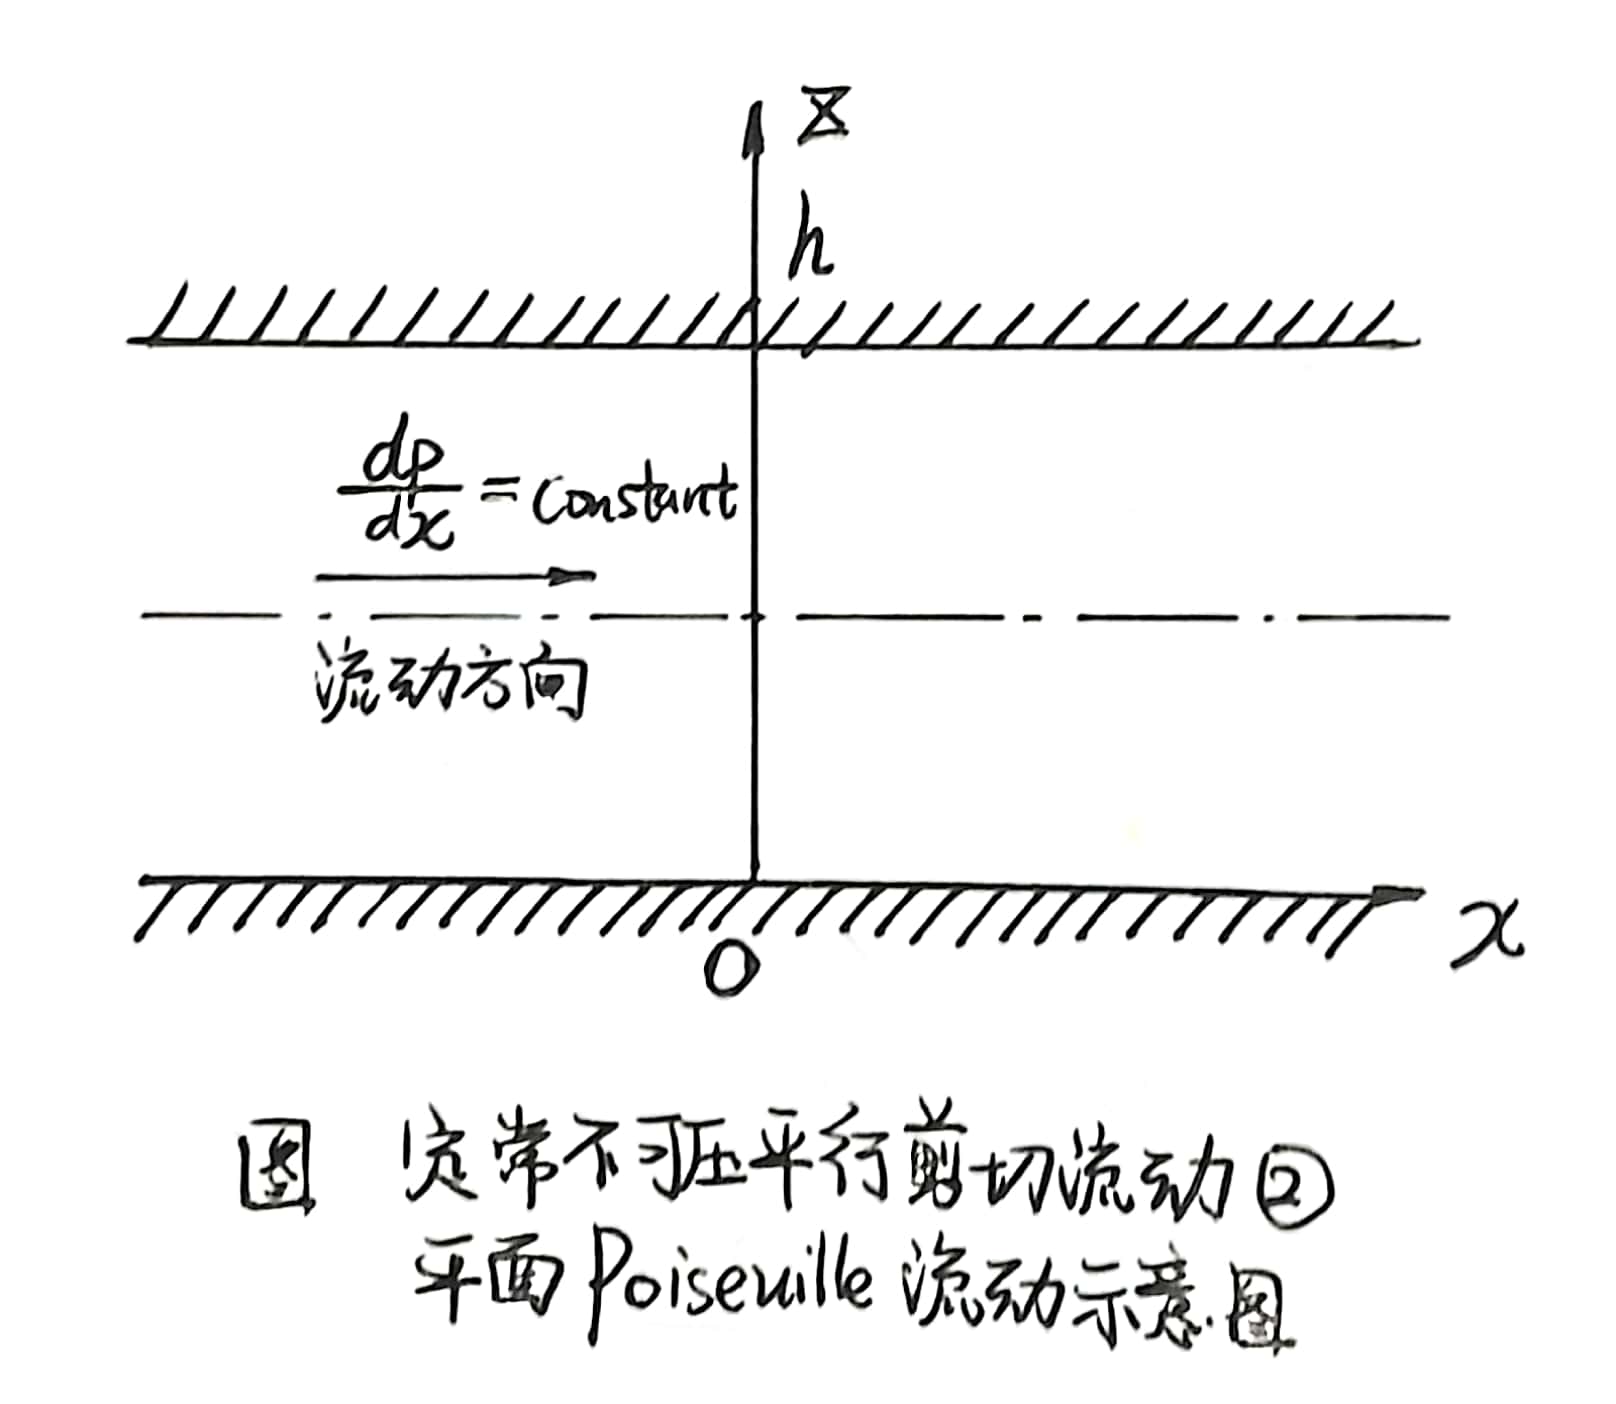 z
h
dp/dx = constant
流动方向
O
x
图 定常不可压平行剪切流动②
平面Poiseuille流动示意图